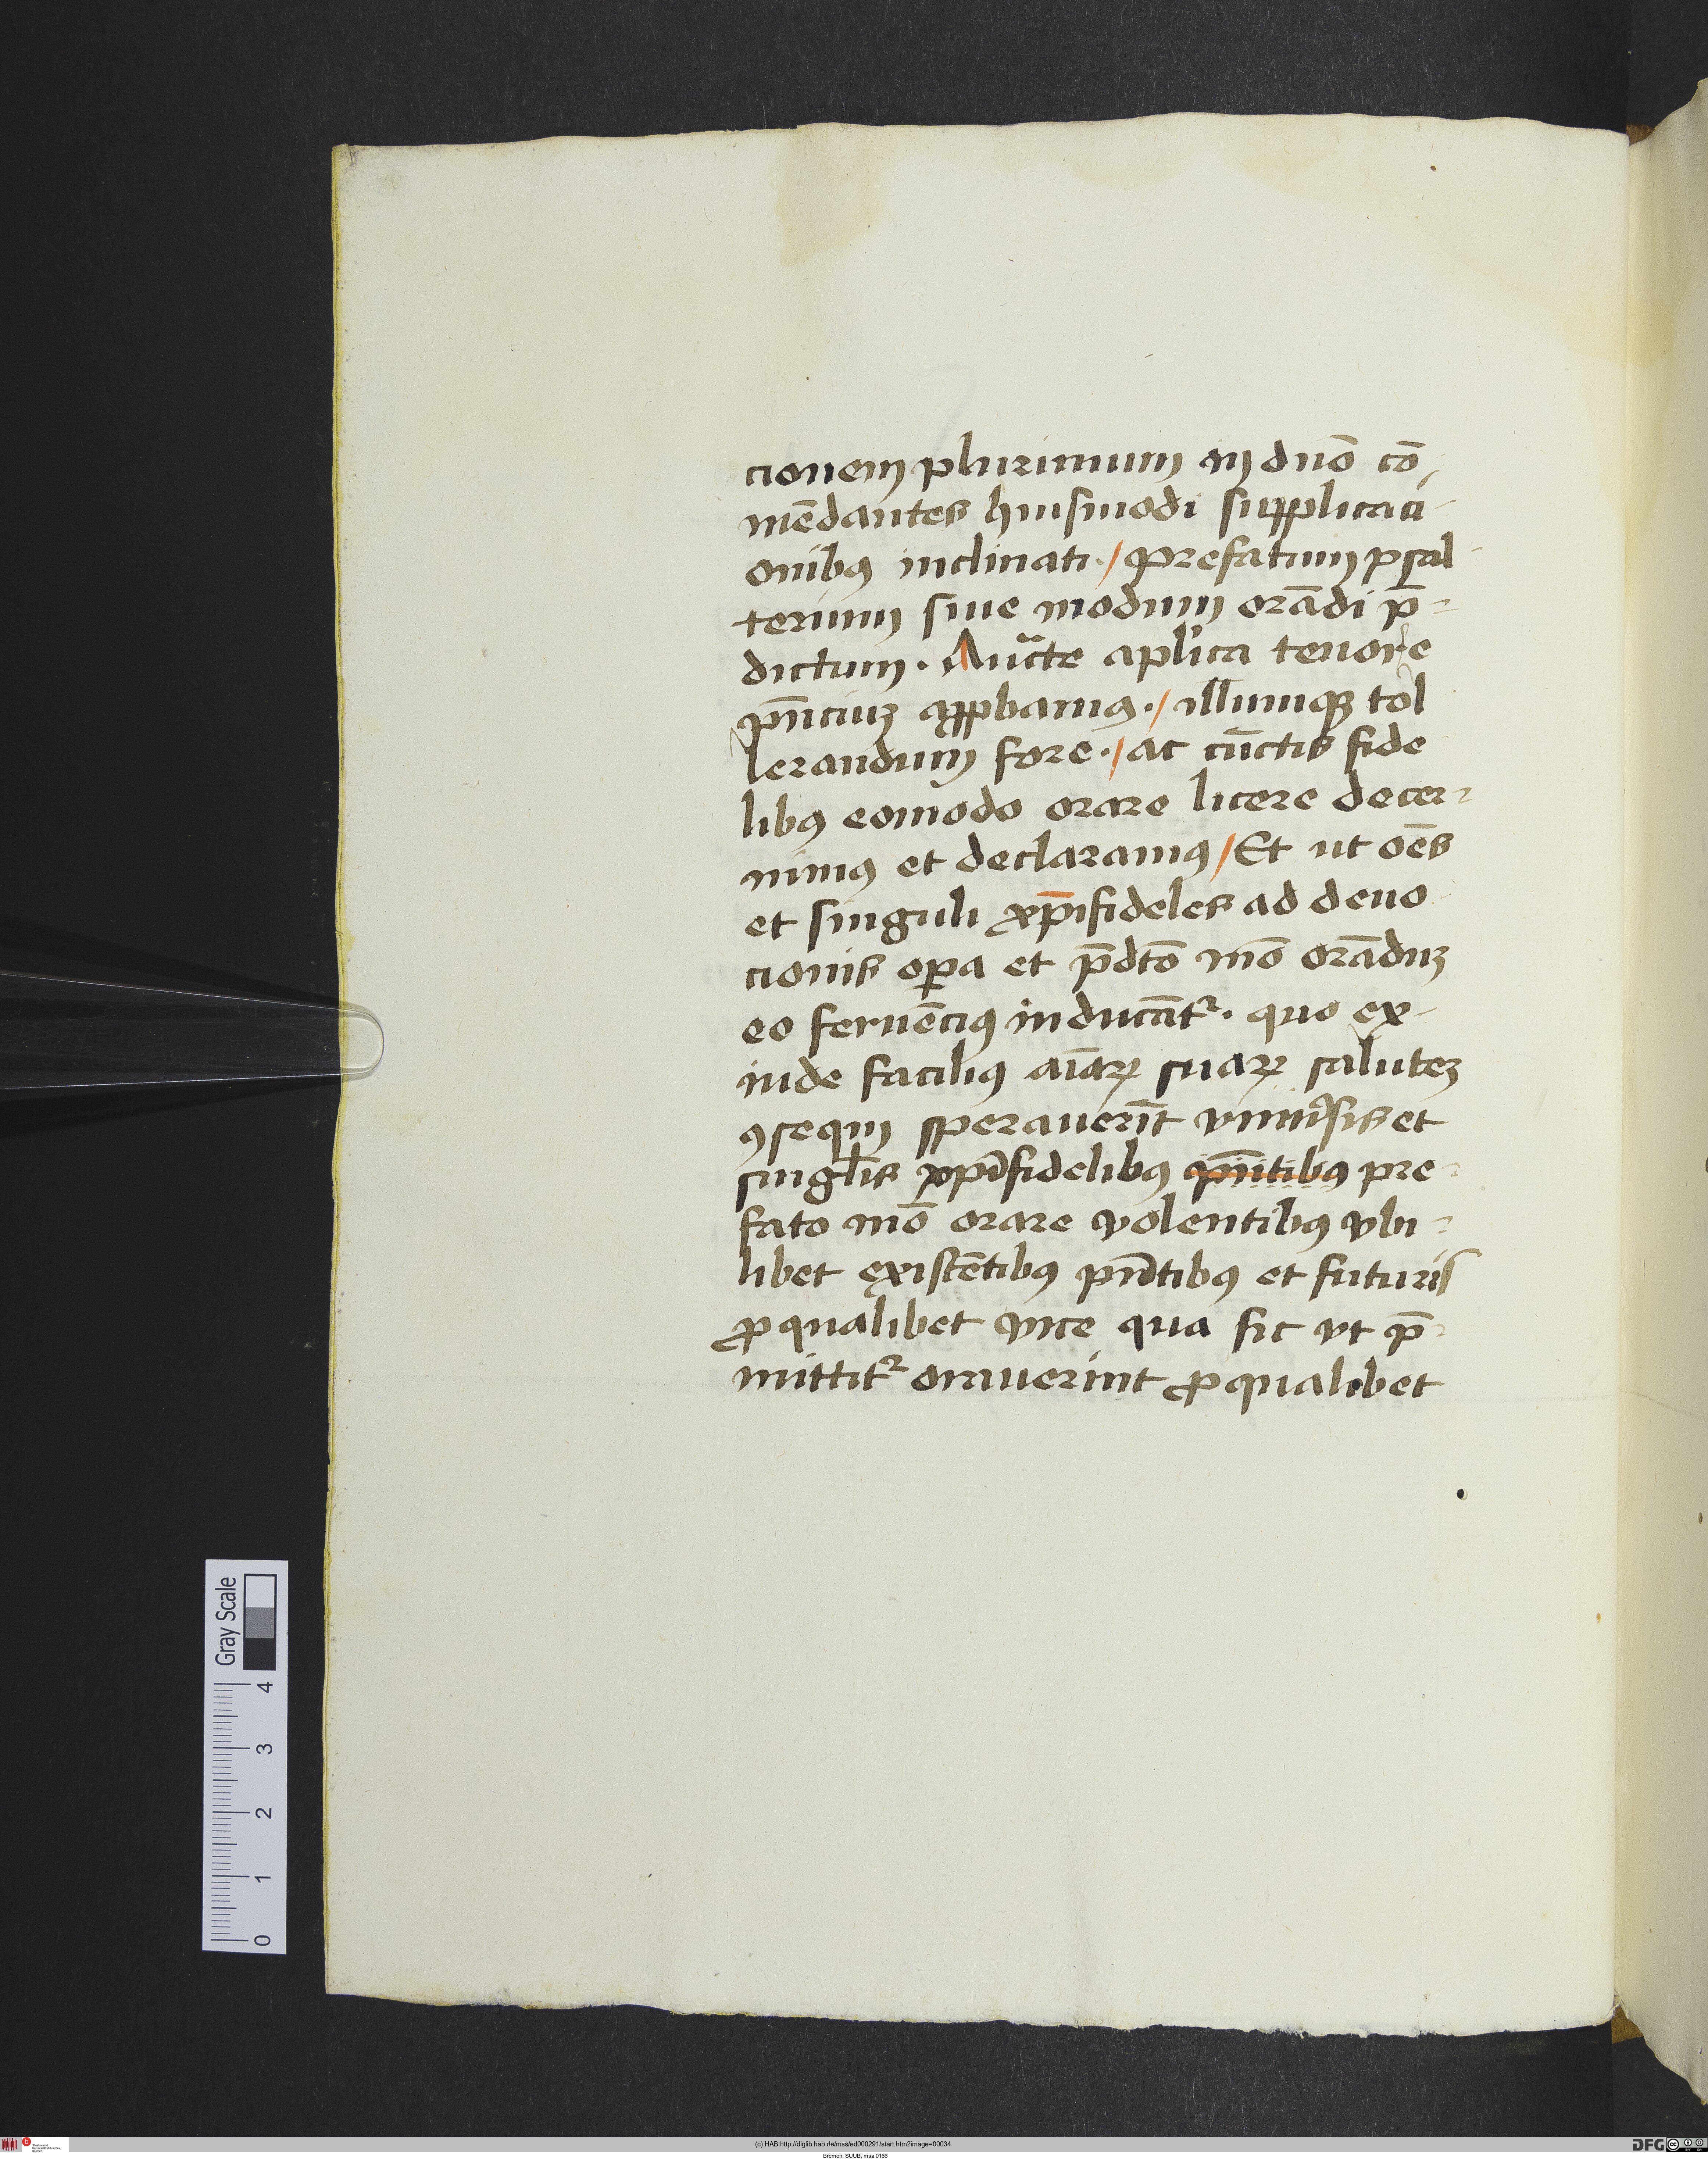 cionem plurimum in dn̄o cō-
mēdantes huiusmodi supplicaci-
onibꝰ inclinati·/ Prefatum psal-
terium siue modum orādi p̄-
dictum. Auct̄e aplica tenore
pn̄ciuʒ appbamꝰ·/ illumqʒ tol
lerandum fore·/ ac cūctis fide
libꝰ eomodo orare licere decer-
nimꝰ et declaramꝰ/ Et ut oēs
et singuli xp̄ifideles ad deuo
cionis oꝑa et p̄dcō mō orāduʒ
eo feruēciꝰ inducāt᷑. quo ex-
inde faciliꝰ aīaꝝ suaꝝ saluteʒ
ꝯsequi sperauerīt vniuersis et
singlis xp̄ifidelibꝰ pn̄tibꝰ pre-
fato mō orare volentibꝰ vbi-
libet existētibꝰ pn̄tibꝰ et futuris
ꝓ qualibet vice qua sic vt p̄-
mittit᷑ orauerint ꝓ qualibet
Gray Scale
0 1 2 3 4
(c) HAB http://diglib.hab.de/mss/ed000291/start.htm?image=00034
Bremen, SUUB, msa 0166
DFG